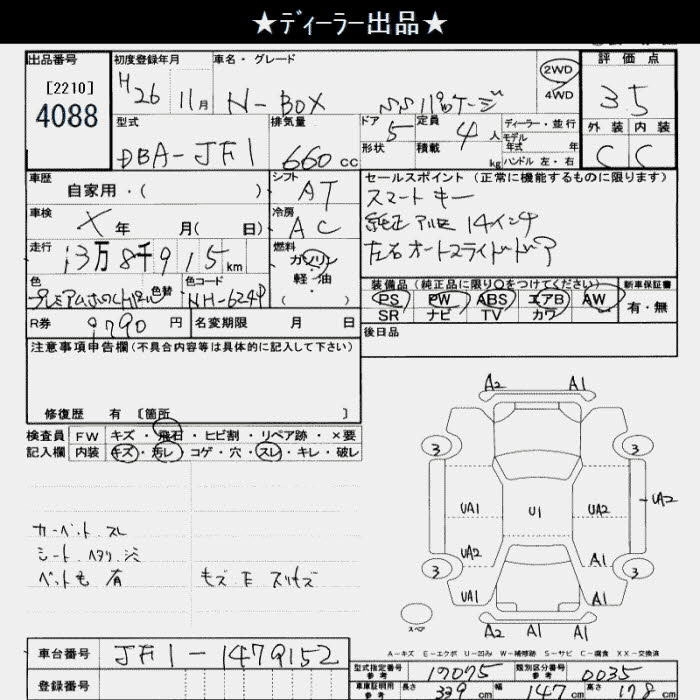 ★ディーラー出品★
出品番号 初度登録年月 車名・グレード 評価点
[2210]
4088
H 26 11月 N-BOX SSパッケージ 2WD 4WD 3.5
外装 内装
C C
型式 排気量 ドア 定員 ディーラー・並行
DBA-JF1 660cc 5 4人 モデル年式 年
形状 積載 kg ハンドル 左・右
車歴 シフト セールスポイント(正常に機能するものに限ります)
自家用・( ) AT スマートキー
車検 冷房 純正アルミ 14インチ
X 年 月( 日) AC 左右オートスライドドア
走行 燃料
13万8千915km ガソリン
軽・油
( )
色 色替 色コード 装備品(純正品に限り○をつけてください) 新車保証書
NH-624P PS PW ABS エアB AW 有・無
SR ナビ TV カワ
R券 9790円 名変期限 月 日 後日品
注意事項申告欄(不具合内容等は具体的に記入して下さい)
修復歴 有 [箇所 ]
検査員 FW キズ・飛石・ヒビ割・リペア跡・×要
記入欄 内装 キズ・汚レ・コゲ・穴・スレ・キレ・破レ
カーペット スレ
シート ヘタリ シミ
ペット毛 有
A2 A1
3 3
UA1 U1 UA2 UA2
UA2 A1
3 3
UA1 A1
スペア
A2 A1 A1
A-キズ E-エクボ U-凹み W-補修跡 S-サビ C-腐食 XX-交換済
車台番号 JF1-1479152
型式指定番号 参考 17075 類別区分番号 参考 0035
登録番号
車庫証明用 参考 長さ 339cm 幅 147cm 高さ 178cm